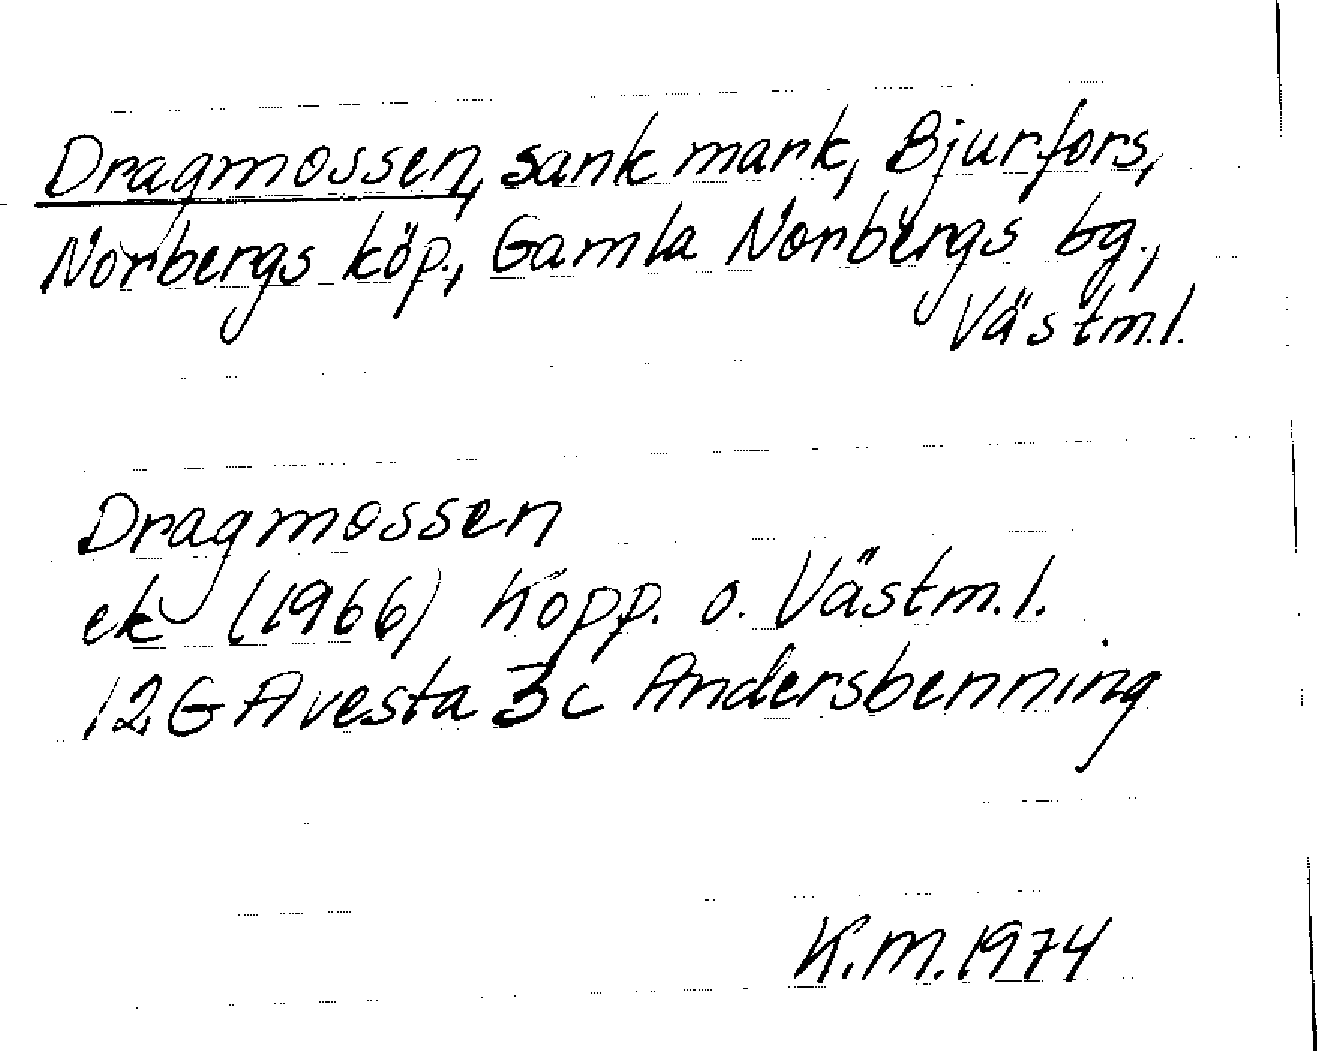 Dragmossen, sank mark, Bjurfors,
Norbergs köp., Gamla Norbergs bg.,
Västm.l.
Dragmossen
ek (1966) Kopp. o. Västm.l.
12G Avesta 3c Andersbenning
K.M. 1974